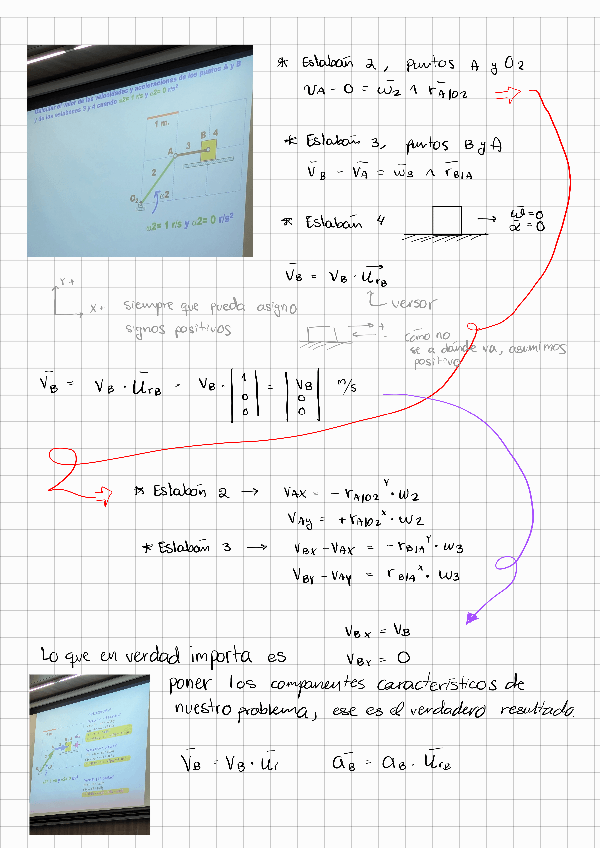 Calcular el valor de las velocidades y aceleraciones de los puntos A y B
y de los eslabones 3 y 4 cuando ω2= 1 r/s y α2= 0 r/s²
1 m.
B 4
A 3
2
O2
ω2
ω2= 1 r/s y α2= 0 r/s²
* Eslabón 2, puntos A y O2
VA - 0 = ω̄2 ∧ r̄A/O2 ⇒
* Eslabón 3, puntos B y A
V̄B - V̄A = ω̄3 ∧ r̄B/A
* Eslabón 4 → ω̄=0
ᾱ=0
V̄B = VB · ūrB
versor
Y+
X+ siempre que pueda asigno
signos positivos
+
-
como no
se a dónde va, asumimos
positivo
V̄B = VB · ūrB = VB · |1 0 0| = |VB 0 0| m/s
⇒ * Eslabón 2 → VAX = - rA/O2^Y · ω2
VAy = + rA/O2^X · ω2
* Eslabón 3 → VBX - VAX = - rB/A^Y · ω3
VBY - VAy = rB/A^X · ω3
VBX = VB
VBY = 0
Lo que en verdad importa es
poner los componentes característicos de
nuestro problema, ese es el verdadero resultado.
V̄B = VB · ūr āB = aB · ūrB